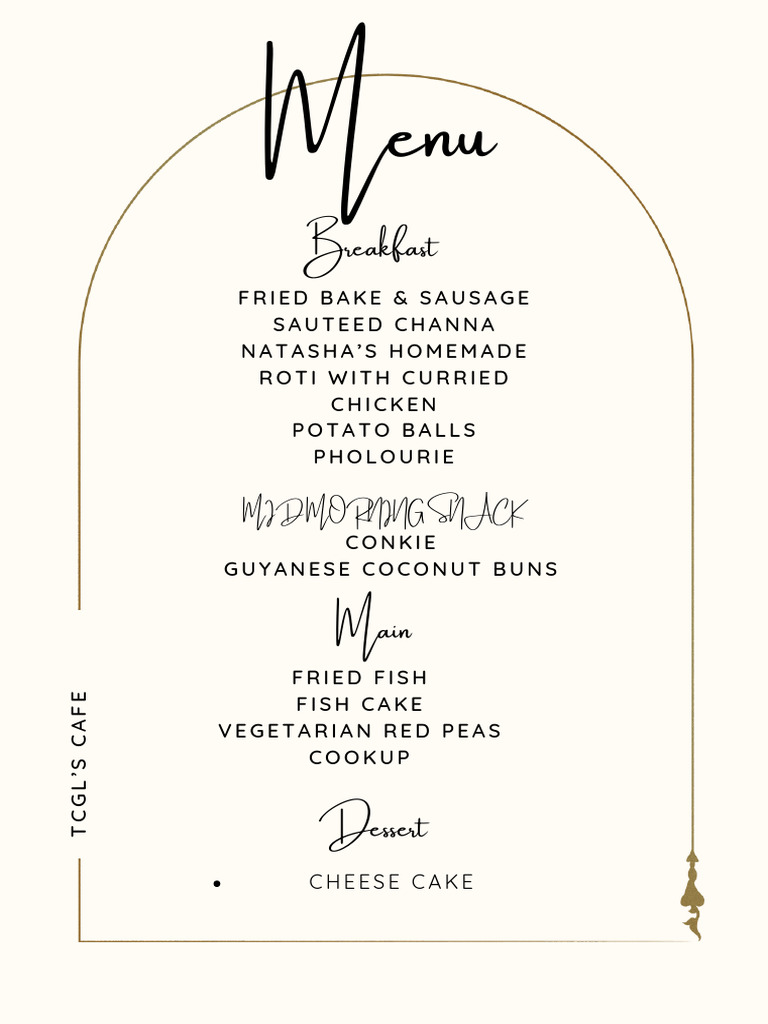 Menu
Breakfast
FRIED BAKE & SAUSAGE
SAUTEED CHANNA
NATASHA'S HOMEMADE
ROTI WITH CURRIED
CHICKEN
POTATO BALLS
PHOLOURIE
MIDMORNING SNACK
CONKIE
GUYANESE COCONUT BUNS
Main
FRIED FISH
FISH CAKE
VEGETARIAN RED PEAS
COOKUP
TCGL'S CAFE
Dessert
• CHEESE CAKE